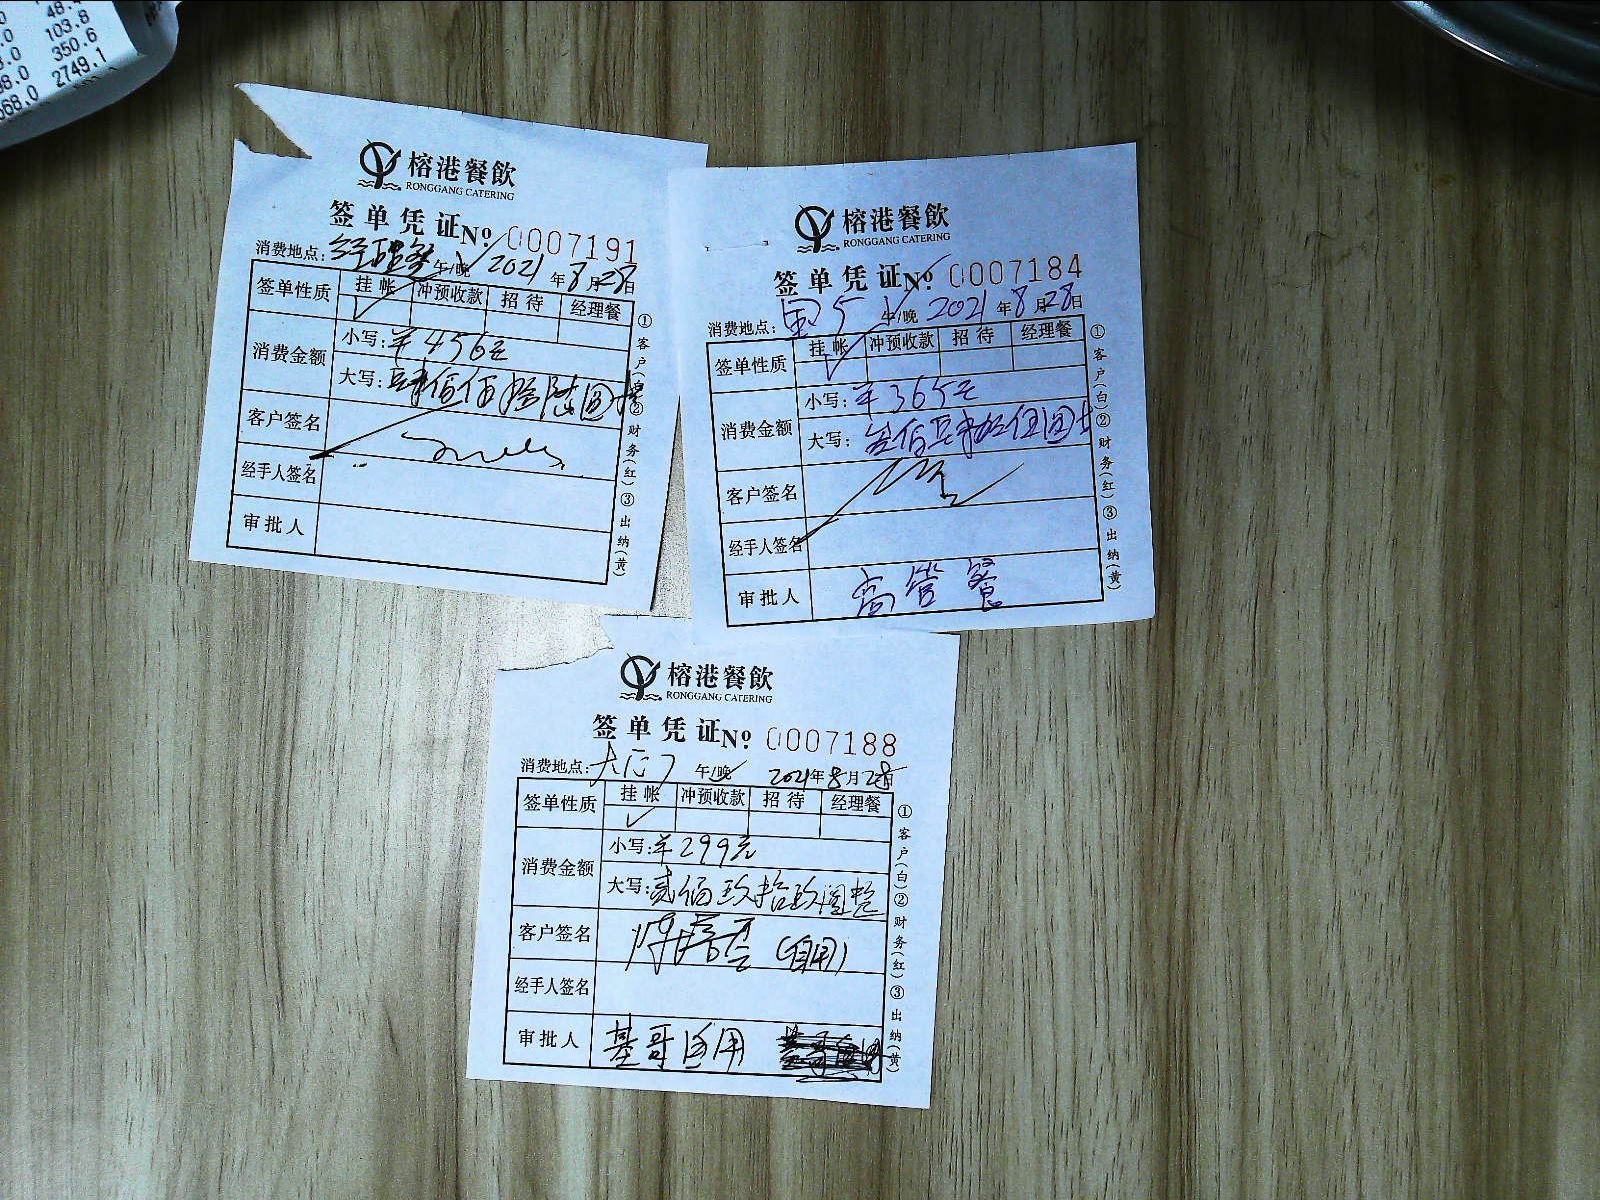 48.
103.8
350.6
98.0 2749.1
568.0
榕港餐飲
RONGGANG CATERING
签单凭证№ 0007191
消费地点：经理餐 午/晚 2021年8月28日
签单性质 挂帐 冲预收款 招待 经理餐
✓
消费金额 小写：¥456元
大写：肆佰伍拾陆圆整
客户签名
经手人签名
审批人
①客户(白)②财务(红)③出纳(黄)
榕港餐飲
RONGGANG CATERING
签单凭证№ 0007184
消费地点：宝5 午/晚 2021年8月28日
签单性质 挂帐 冲预收款 招待 经理餐
✓
消费金额 小写：¥365元
大写：叁佰陆拾伍圆
客户签名
经手人签名
审批人 高管餐
①客户(白)②财务(红)③出纳(黄)
榕港餐飲
RONGGANG CATERING
签单凭证№ 0007188
消费地点：大厅7 午/晚 2021年8月28日
签单性质 挂帐 冲预收款 招待 经理餐
✓
消费金额 小写：¥299元
大写：贰佰玖拾玖圆整
客户签名 (自用)
经手人签名
审批人 基哥 用
①客户(白)②财务(红)③出纳(黄)